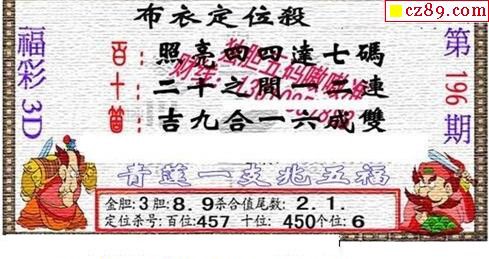 cz89.com
布衣定位殺
福彩3D
第196期
百：照亮四四達七碼
十：二千之間一二連
箇：吉九合一六成雙
青蓮一支兆五福
金胆:3胆:8.9杀合值尾数:2.1.
定位杀号:百位:457 十位:450个位:6